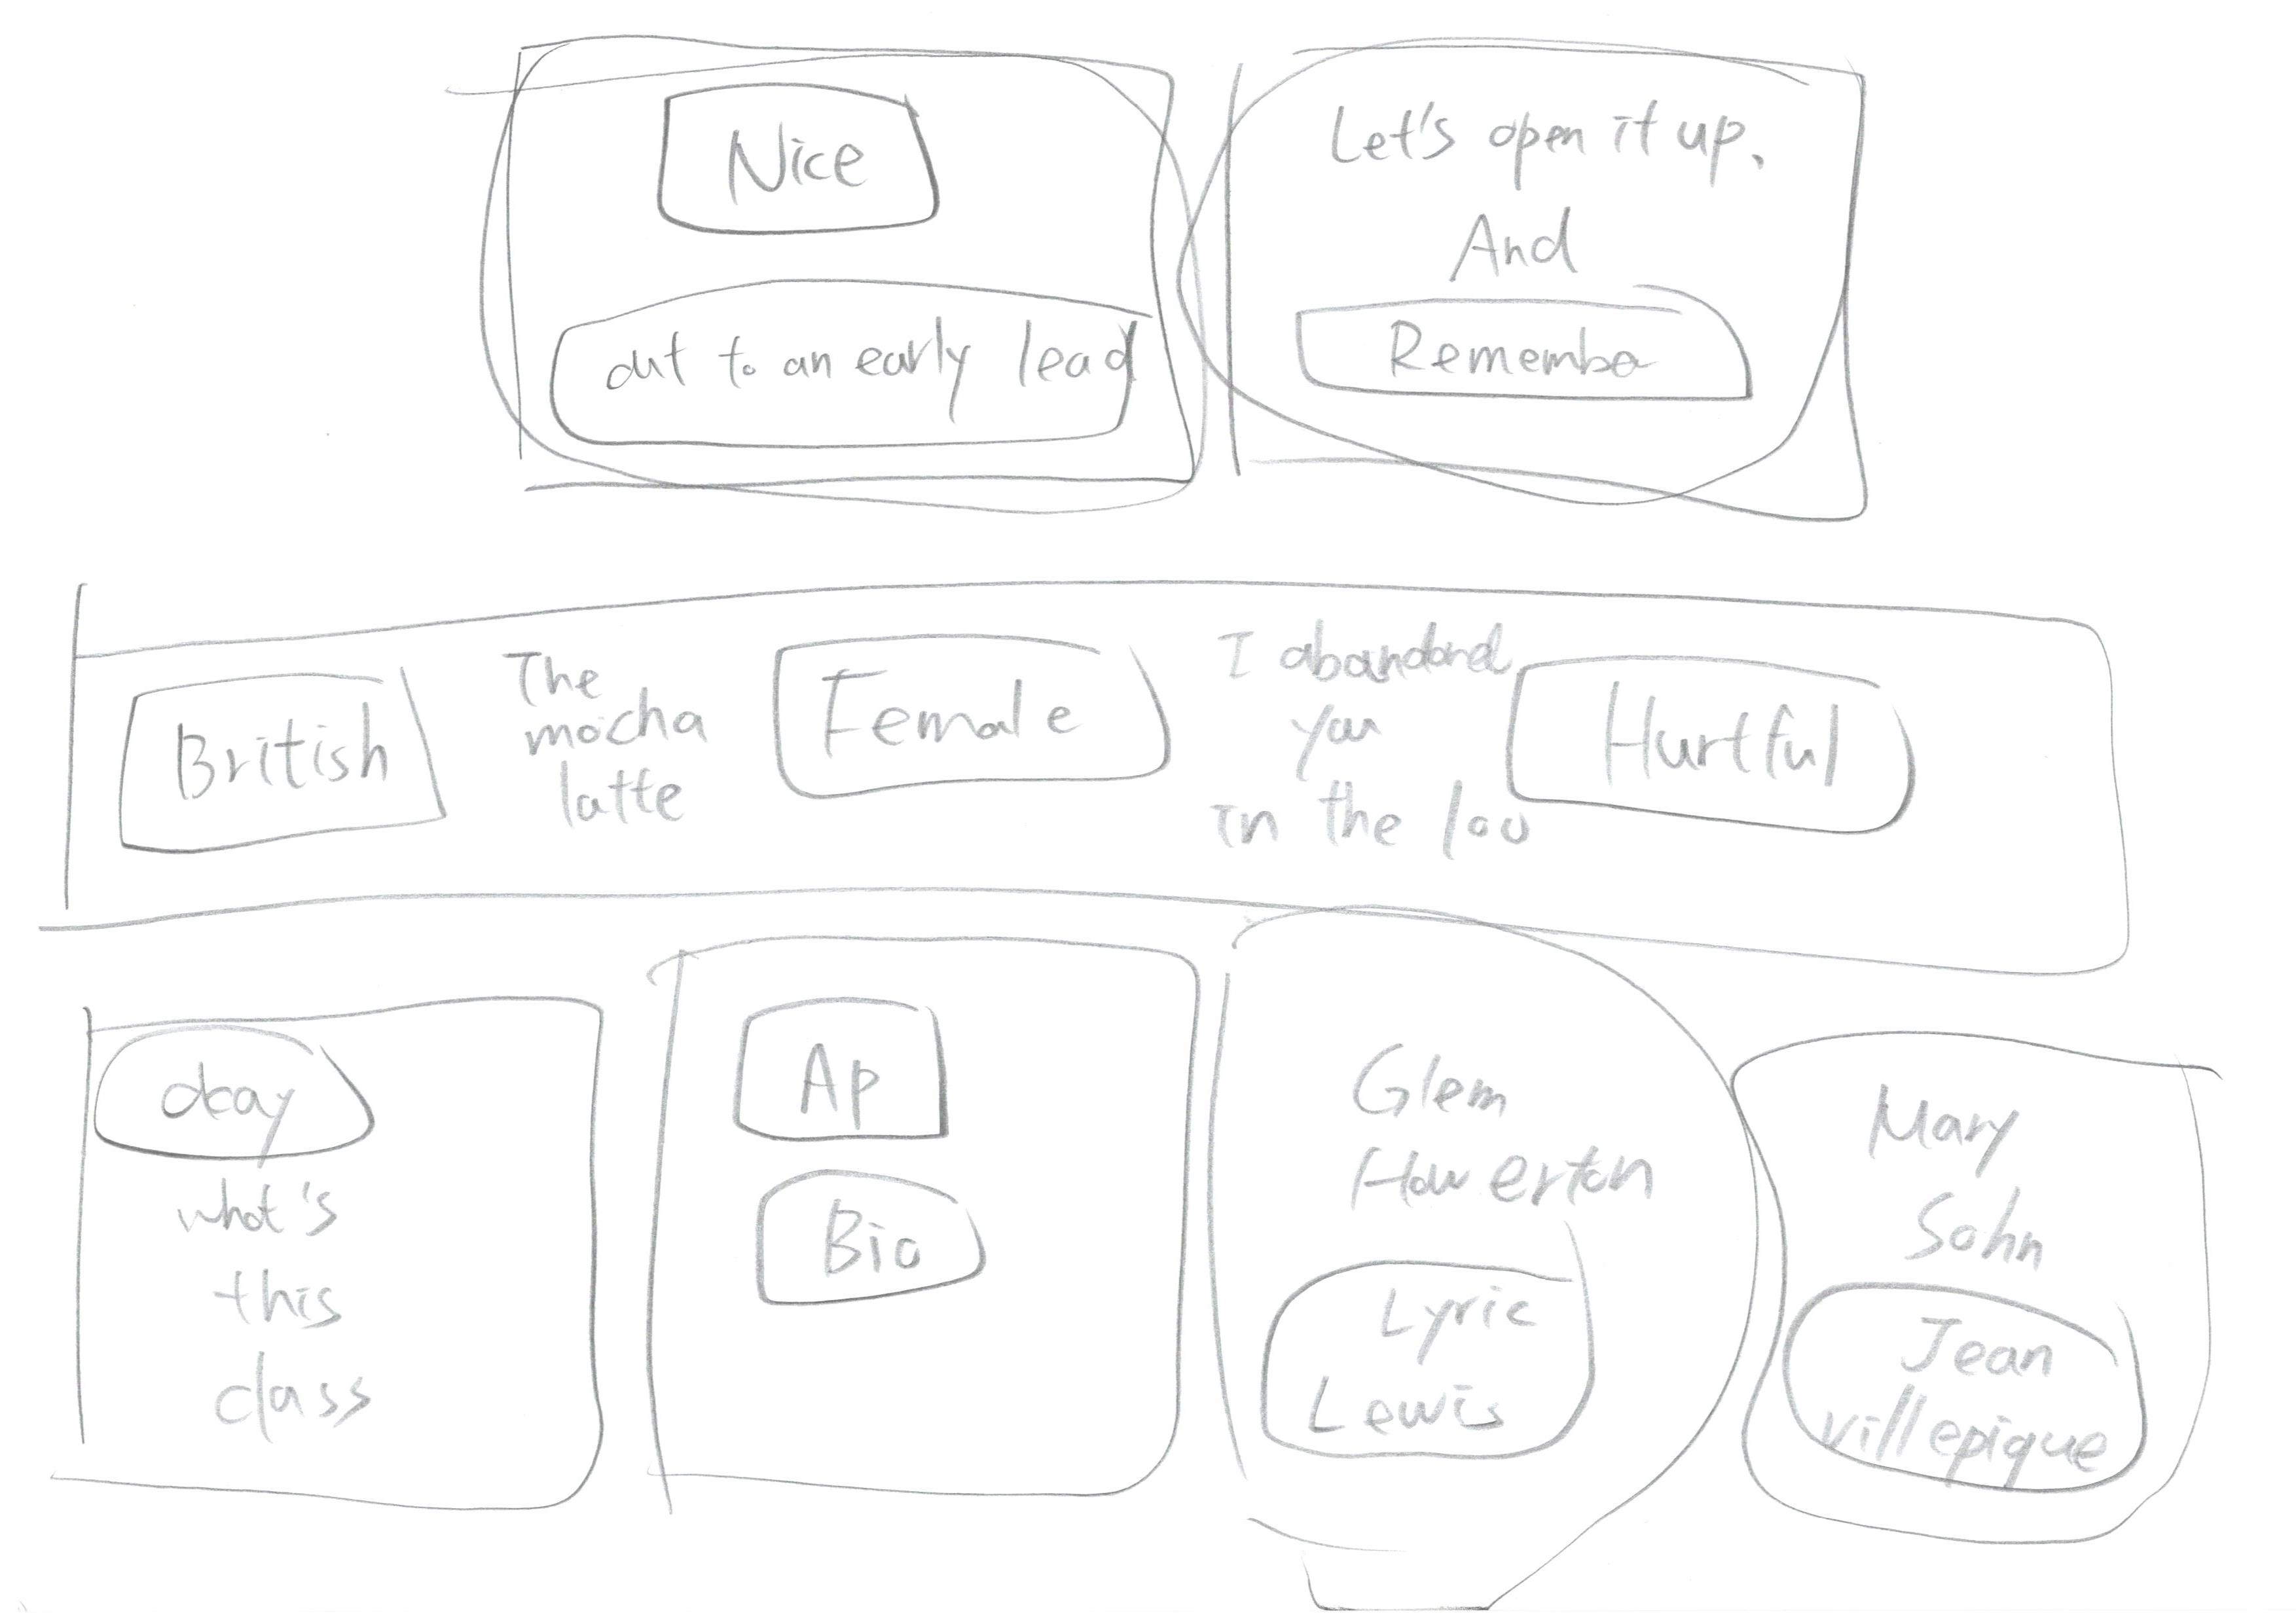 Nice
out to an early lead
Let's open it up.
And
Remember
British
The
mocha
latte
Female
I abandoned
you
in the loo
Hurtful
okay
what's
this
class
Ap
Bio
Glem
Howerton
Lyric
Lewis
Mary
Sohn
Jean
villepique